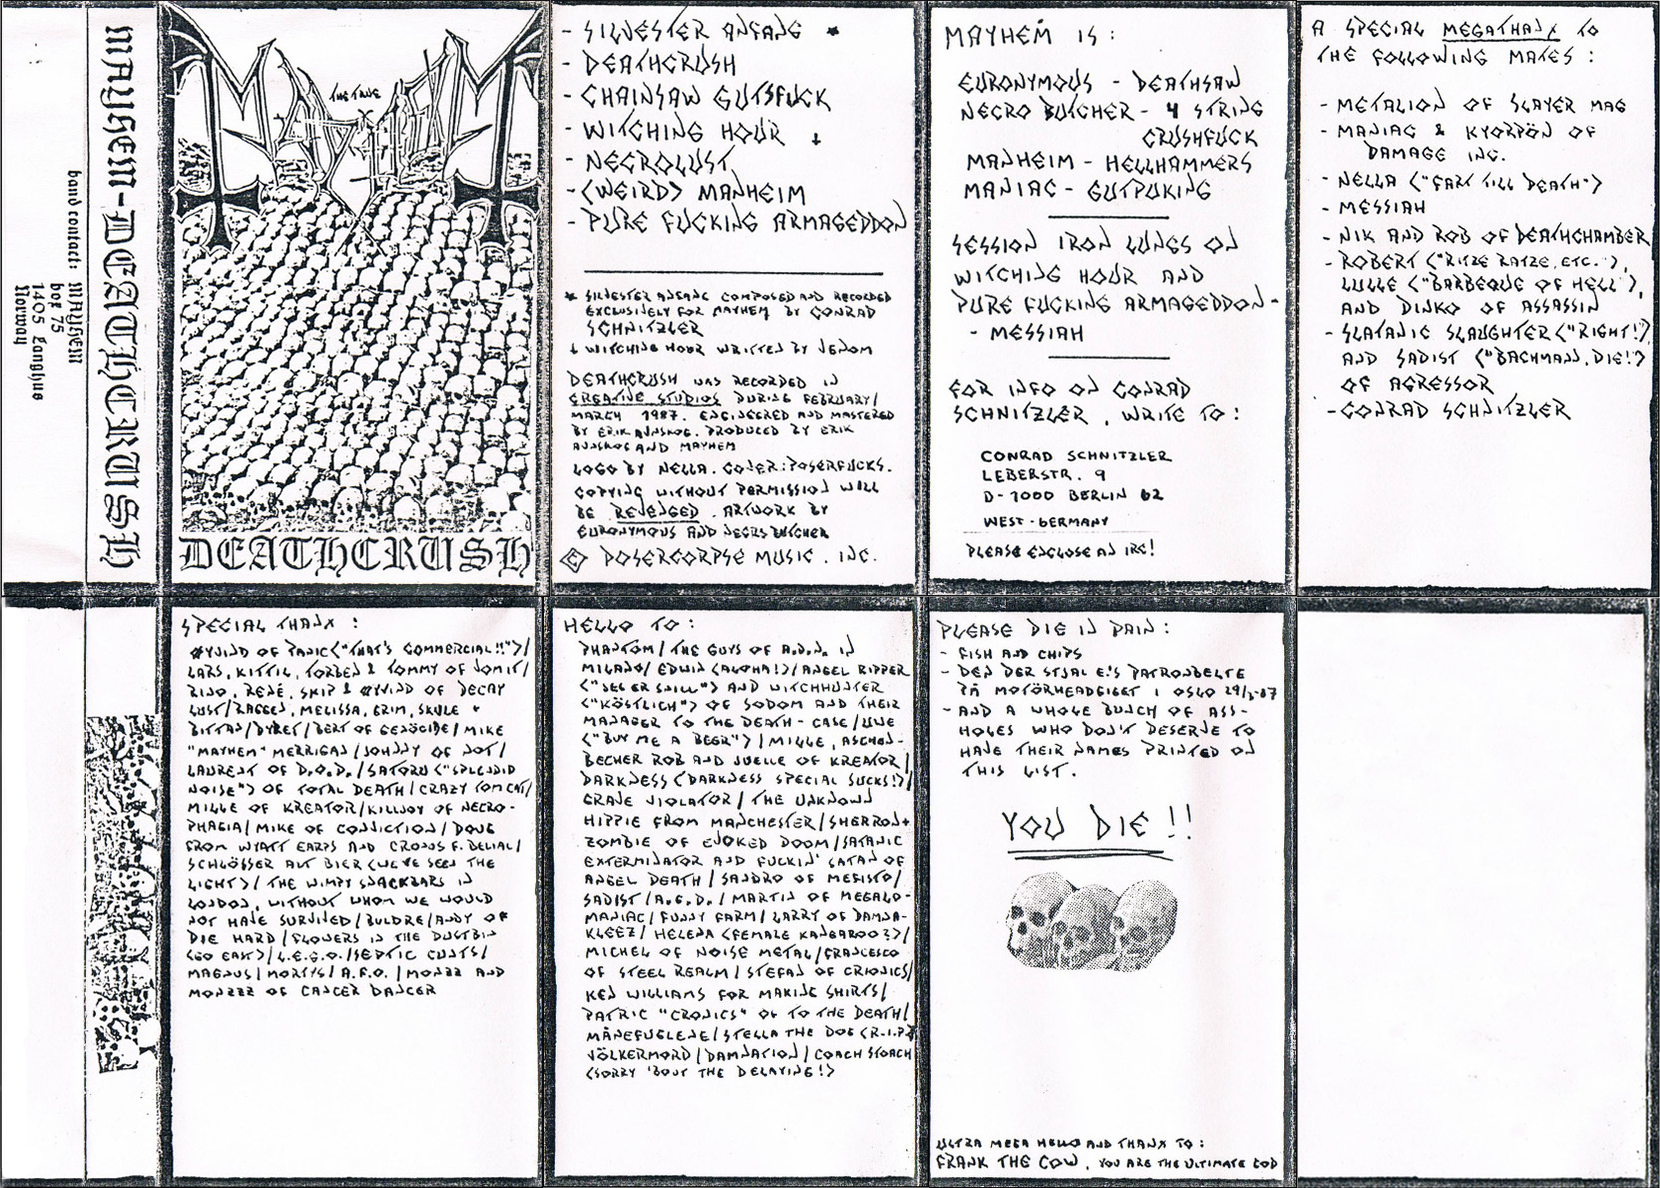 band contact: MAYHEM
box 75
1405 Langhus
Norway
MAYHEM-DEATHCRUSH
THE TRUE
MAYHEM
DEATHCRUSH
- SILVESTER ANFANG *
- DEATHCRUSH
- CHAINSAW GUTSFUCK
- WITCHING HOUR ↓
- NECROLUST
- (WEIRD) MANHEIM
- PURE FUCKING ARMAGEDDON
* SILVESTER ANFANG COMPOSED AND RECORDED
EXCLUSIVELY FOR MAYHEM BY CONRAD
SCHNITZLER
↓ WITCHING HOUR WRITTEN BY VENOM
DEATHCRUSH WAS RECORDED IN
CREATIVE STUDIOS DURING FEBRUARY/
MARCH 1987. ENGINEERED AND MASTERED
BY ERIK AVNSKOG. PRODUCED BY ERIK
AVNSKOG AND MAYHEM
LOGO BY NELLA. COVER: POSERFUCKS.
COPYING WITHOUT PERMISSION WILL
BE REVENGED. ARTWORK BY
EURONYMOUS AND NECRO BUTCHER
© POSERCORPSE MUSIC. INC.
MAYHEM IS:
EURONYMOUS - DEATHSAW
NECRO BUTCHER - 4 STRING
CRUSHFUCK
MANHEIM - HELLHAMMERS
MANIAC - GUTPUKING
SESSION IRON LUNGS ON
WITCHING HOUR AND
PURE FUCKING ARMAGEDDON -
- MESSIAH
FOR INFO ON CONRAD
SCHNITZLER, WRITE TO:
CONRAD SCHNITZLER
LEBERSTR. 9
D-1000 BERLIN 62
WEST-GERMANY
PLEASE ENCLOSE AN IRC!
A SPECIAL MEGATHANX TO
THE FOLLOWING MATES:
- METALION OF SLAYER MAG
- MANIAC & KYORPÖN OF
DAMAGE INC.
- NELLA ("FART TILL DEATH")
- MESSIAH
- NIK AND ROB OF DEATHCHAMBER
- ROBERT ("RITZE RATZE, ETC."),
LULLE ("BARBEQUE OF HELL"),
AND DINKO OF ASSASSIN
- SLATANIC SLAUGHTER ("RIGHT!")
AND SADIST ("BACHMANN, DIE!")
OF AGRESSOR
- CONRAD SCHNITZLER
SPECIAL THANX:
ØYVIND OF PANIC ("THAT'S COMMERCIAL!!")/
LARS, KITTIL, TORBEN & TOMMY OF VOMIT/
RINO, RENÉ, SKIP & ØYVIND OF DECAY
LUST/RAGGEN, MELISSA, GRIM, SKULE +
BITTAN/DYRET/BERT OF GENÖCIDE/MIKE
"MAYHEM" MERRIGAN/JOHNNY OF NOT/
LAURENT OF D.O.D./SATORU ("SPLENDID
NOISE") OF TOTAL DEATH/CRAZY TOMCAT/
MILLE OF KREATOR/KILLJOY OF NECRO-
PHAGIA/MIKE OF CONVICTION/DOUG
FROM WYATT EARPS AND CRONOS F. BELIAL/
SCHLÖSSER ALT BIER (WE'VE SEEN THE
LIGHT)/THE WIMPY SNACKBARS IN
LONDON, WITHOUT WHOM WE WOULD
NOT HAVE SURVIVED/BULDRE/ANDY OF
DIE HARD/FLOWERS IN THE DUSTBIN
(GO EAST)/L.E.G.O./SEPTIC CUNTS/
MAGNUS/MORTYS/A.F.O./MONZZ AND
MONZZZ OF CANCER DANCER
HELLO TO:
PHANTOM/THE GUYS OF A.D.N. IN
MILANO/EDWIN (ALOHA!)/ANGEL RIPPER
AND WITCHHUNTER
("KÖSTLICH") OF SODOM AND THEIR
MANAGER TO THE DEATH-CASE/UWE
("BUY ME A BEER")/MILLE, ASCHEN-
BECHER ROB AND OF KREATOR/
DARKNESS (DARKNESS SPECIAL SUCKS!)/
GRAVE VIOLATOR/THE UNKNOWN
HIPPIE FROM MANCHESTER/SHERRON+
ZOMBIE OF EVOKED DOOM/SATANIC
EXTERMINATOR AND FUCKIN' SATAN OF
ANGEL DEATH/SANDRO OF MEFISTO/
SADIST/A.G.D./MARTIN OF MEGALO-
MANIAC/FUNNY FARM/LARRY OF DAMNA-
KLEEZ/HELENA (FEMALE KANGAROO?)/
MICHEL OF NOISE METAL/FRANCESCO
OF STEEL REALM/STEFAN OF CRIONICS/
KEN WILLIAMS FOR MAKING SHIRTS/
PATRIC "CRONICS" OF TO THE DEATH/
MÅNEFUGLENE/STELLA THE DOG (R.I.P.)
VÖLKERMORD/DAMNATION/COACH STOACH
(SORRY 'BOUT THE DELAYING!)
PLEASE DIE IN PAIN:
- FISH AND CHIPS
- DEN DER STJAL E'S PATRONBELTE
PÅ MOTÖRHEADGIGET I OSLO 29/3-87
- AND A WHOLE BUNCH OF ASS-
HOLES WHO DON'T DESERVE TO
HAVE THEIR NAMES PRINTED ON
THIS LIST.
YOU DIE!!
ULTRA MEGA HELLO AND THANX TO:
FRANK THE COW, YOU ARE THE ULTIMATE GOD